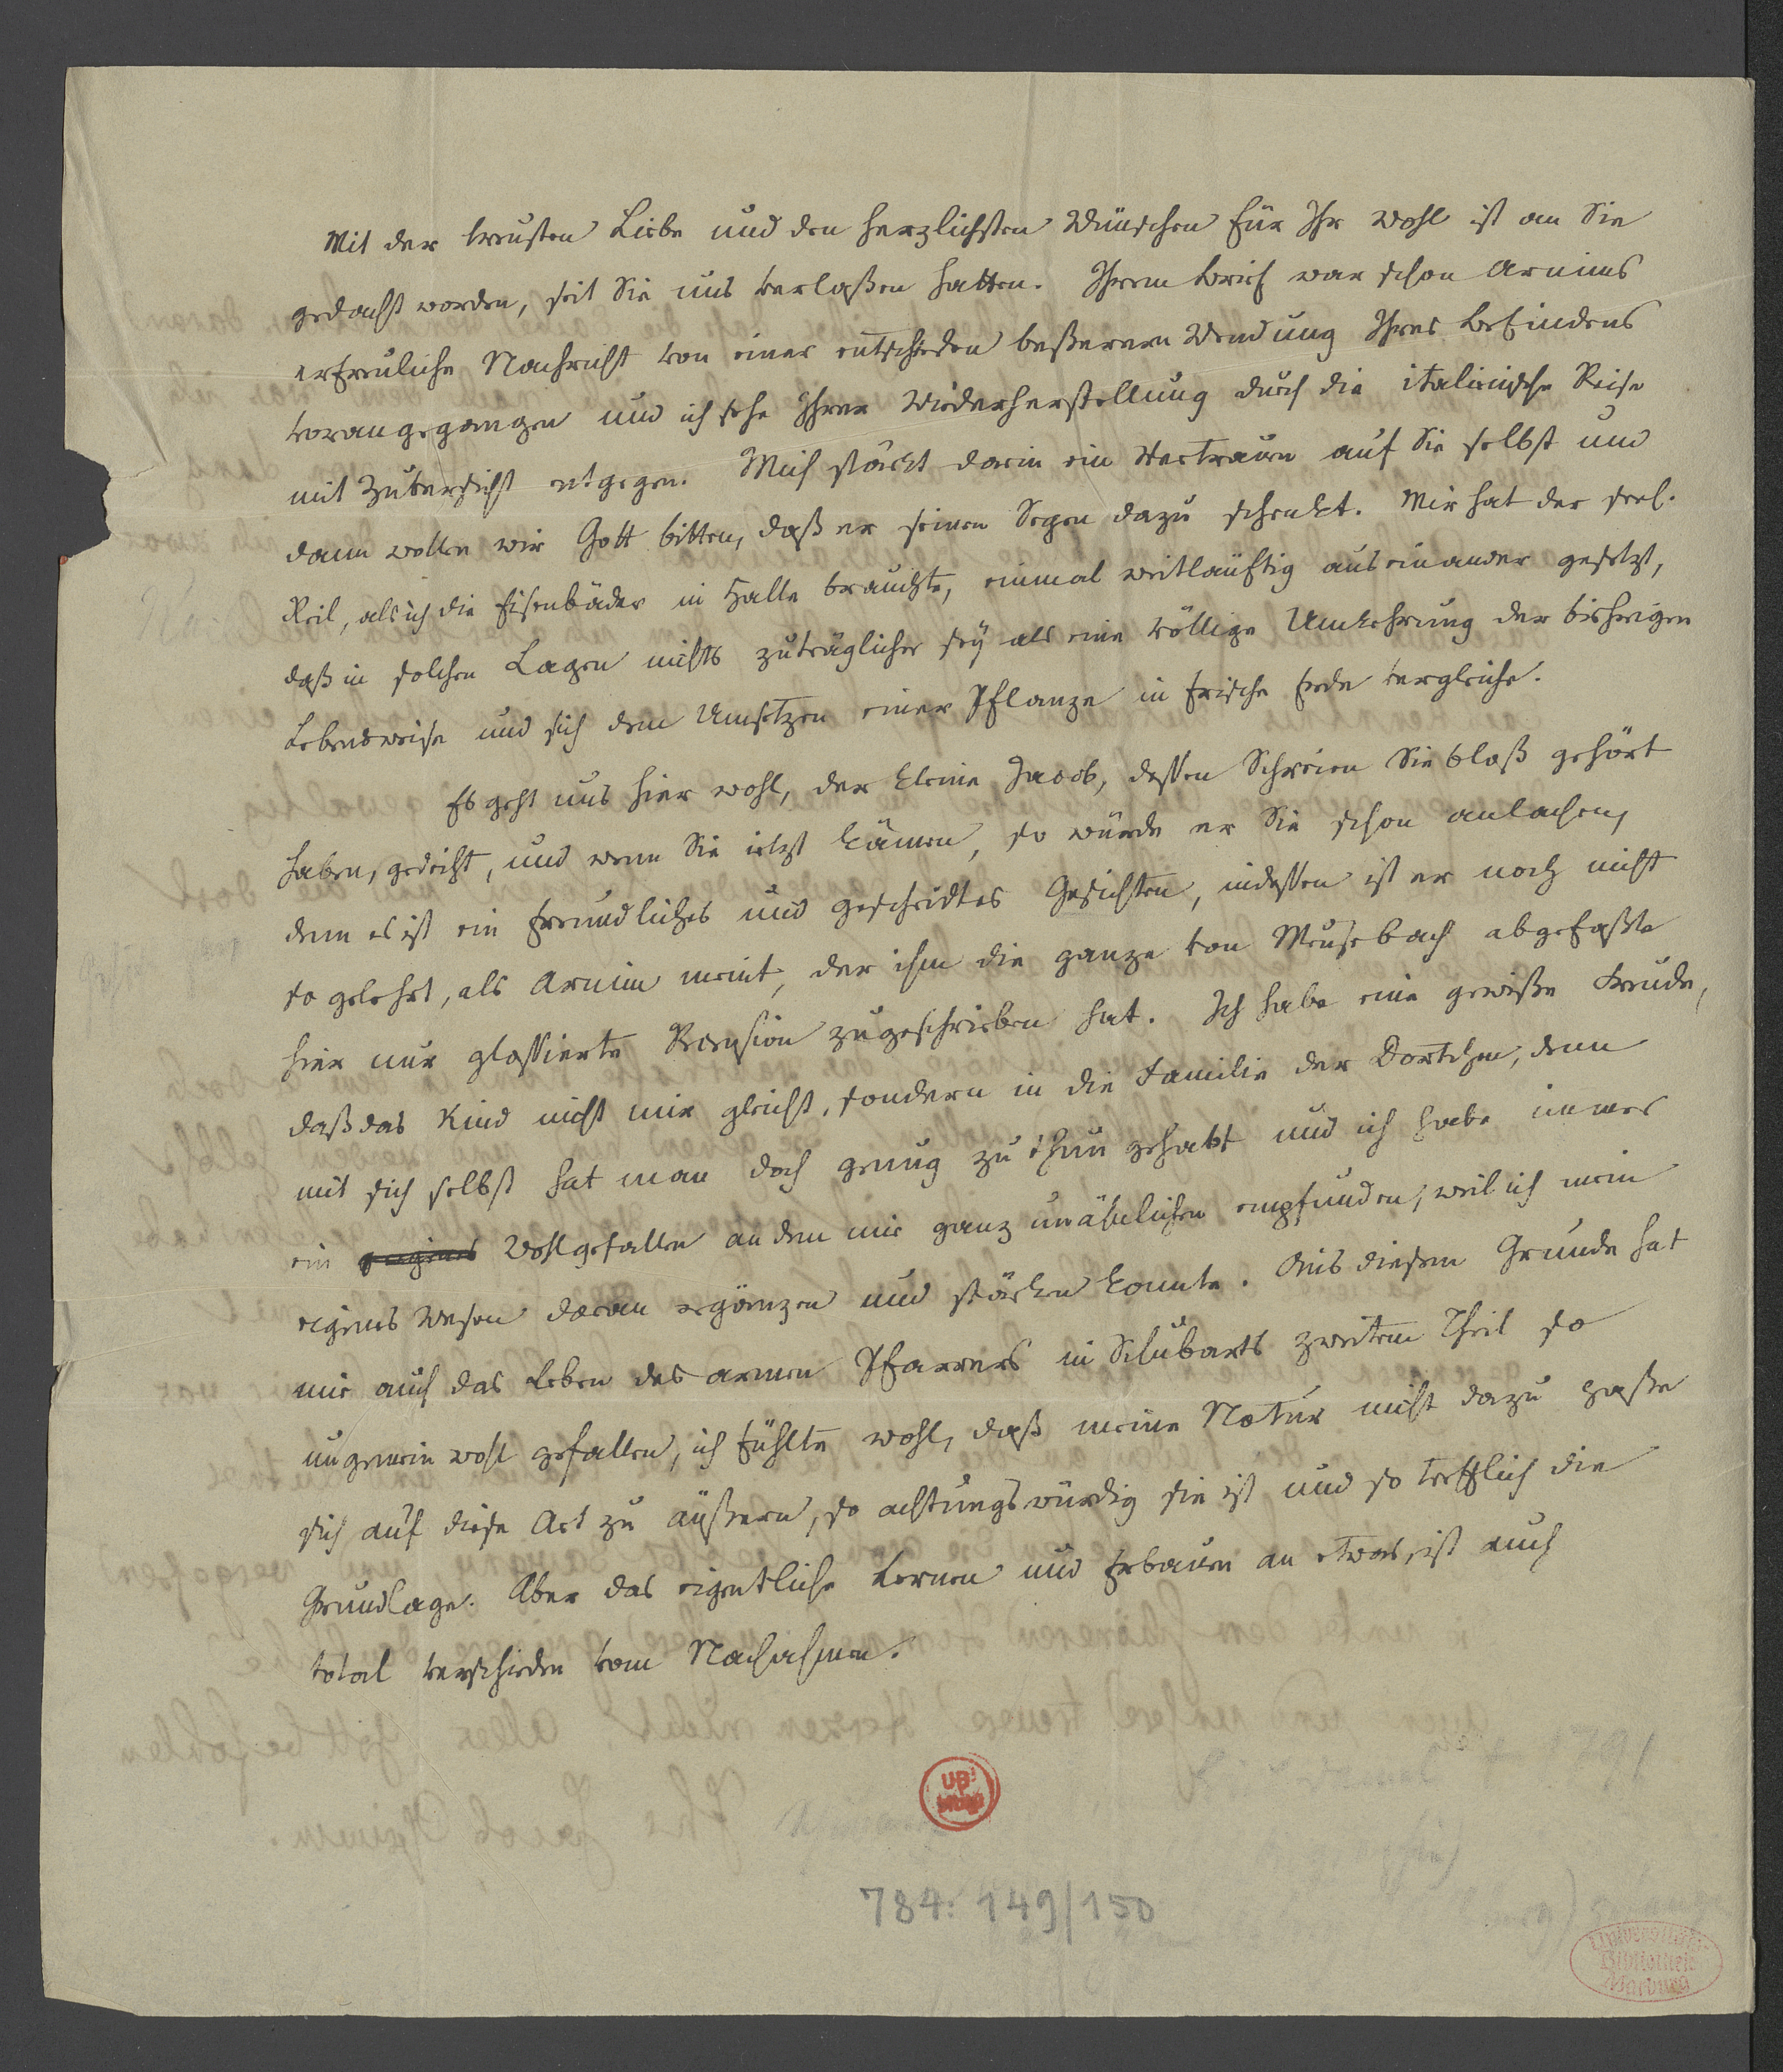 Mit der treusten Liebe und den herzlichsten Wünschen für Ihr Wohl ist an Sie
gedacht worden, seit Sie uns verlaßen hatten. Ihrem Brief war schon Arnims
erfreuliche Nachricht von einer entschieden beßeren Wendung Ihres Befindens
vorangegangen und ich sehe Ihrer Wiederherstellung durch die italienische Reise
mit Zuversicht entgegen. Mich stärkt darin ein Vertrauen auf Sie selbst und
dann wollen wir Gott bitten, daß er seinen Segen dazu schenkt. Mir hat der seel.
Reil, als ich die Eisenbäder in Halle brauchte, einmal weitläuftig auseinander gesetzt,
daß in solchen Lagen nichts zuträglicher sey als eine völlige Umkehrung der bisherigen
Lebensweise und sich dem Umsetzen einer Pflanze in frische Erde vergleiche.
Es geht uns hier wohl, der kleine Jacob, deßen Schreien Sie bloß gehört
haben, gedeiht, und wenn Sie jetzt kämen, so würde er Sie schon anlachen,
denn es ist ein freundliches und gescheidtes Gesichtchen, indeßen ist er noch nicht
so gelehrt, als Arnim meint, der ihm die ganze von Meusebach abgefaßte
hier nur glossierte Recension zugeschrieben hat. Ich habe eine gewiße Freude,
daß das Kind nicht mir gleicht, sondern in die Familie der Dortchen, denn
mit sich selbst hat man doch genug zu thun gehabt und ich habe immer
ein eigenes Wohlgefallen an dem mir ganz unähnlichen empfunden, weil ich mein
eigenes Wesen daran ergänzen und stärken konnte. Aus diesem Grunde hat
mir auch das Leben des armen Pfarrers in Schubarts zweitem Theil so
ungemein wohl gefallen, ich fühlte wohl, daß meine Natur nicht dazu paße
sich auf diese Art zu äußern, so achtungswürdig sie ist und so trefflich die
Grundlage. Aber das eigentliche Lernen und Erbauen an etwas ist auch
total verschieden vom Nachahmen.
UB
784: 149/150
Universitäts-
Bibliothek
Marburg